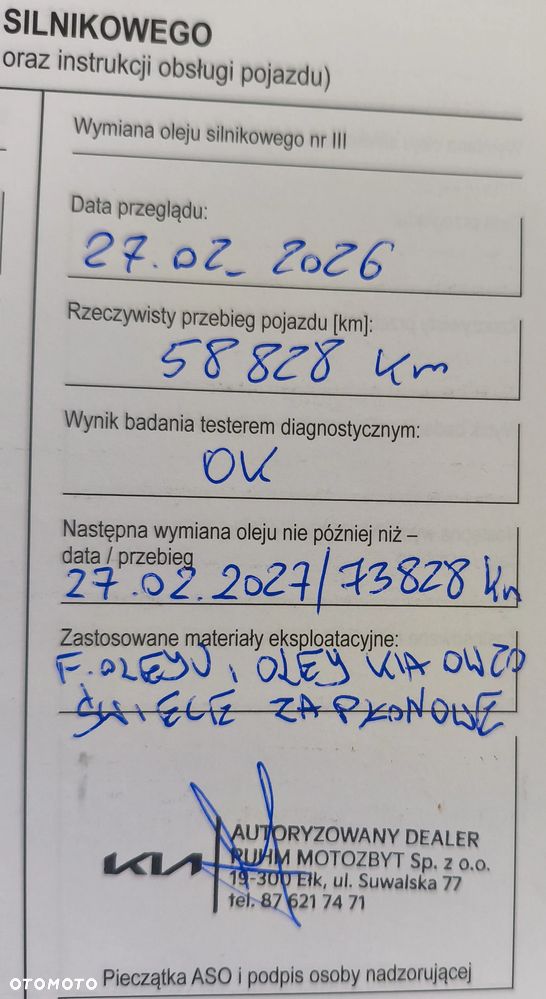 SILNIKOWEGO
oraz instrukcji obsługi pojazdu)
Wymiana oleju silnikowego nr III
Data przeglądu:
27.02. 2026
Rzeczywisty przebieg pojazdu [km]:
58 828 Km
Wynik badania testerem diagnostycznym:
OK
Następna wymiana oleju nie później niż –
data / przebieg
27.02.2027/73828 km
Zastosowane materiały eksploatacyjne:
F. OLEJU, OLEJ KIA 0W20
ŚWIECE ZAPŁONOWE
AUTORYZOWANY DEALER
KIA RUHM MOTOZBYT Sp. z o.o.
19-300 Ełk, ul. Suwalska 77
tel. 87 621 74 71
Pieczątka ASO i podpis osoby nadzorującej
OTOMOTO